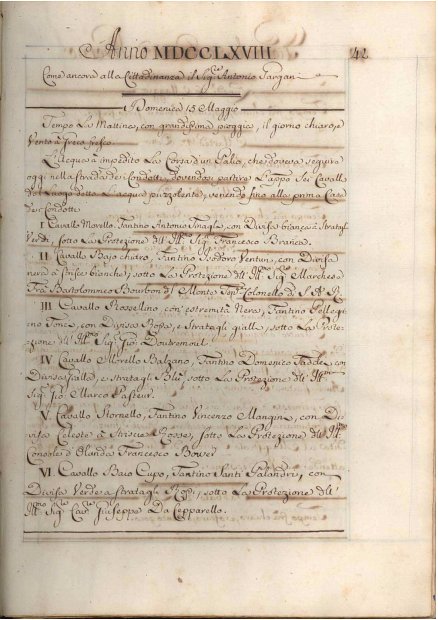 Anno MDCCLXVIII 42
Come ancora alla Cittadinanza il Sig.re Antonio Pargani
Domenica 15 Maggio
Tempo La Mattina, con grandissima pioggia, il giorno chiaro, e
Vento à fresco.
L'acqua à impedito La Corsa d'un Palio, che doveva seguire
oggi nella strada dei Condotti, dovendosi partire L'appo Sei Cavalli
dal Luogo detto L'acqua puzzolente, venendo fino alle prima Case
dei Condotti.
I Cavallo Morello, Fantino Antonio Tnagli, con Divisa bianca à Stratagli
Verdi, sotto La Protezione dell' Ill.mo Sig.re Francesco Branca.
II Cavallo Bajo chiaro, Fantino Isidoro Venturi, con Divisa
nera à Strisce bianche, sotto La Protezione dell' Ill.mo Sig.re Marchese
Fra Bartolommeo Bourbon del Monte Ten.te Colonello di S. A. R.
III Cavallo Rossellino, con estremità Nera, Fantino Pellegri
no Tonci, con Divisa Rossa, e Stratagli gialli, sotto La Prote
zione d'Ill.mo Sig.re Gio: Doutremoul.
IV Cavallo Morello Balzano, Fantino Domenico Taddei, con
Divisa gialla, e Stratagli Blù, sotto La Protezione dell' Ill.mo
Sig.re Gio: Marco Pasteur.
V Cavallo Stornello, Fantino Vincenzo Mangini, con Di
visa Celeste à Strisce Rosse, sotto La Protezione dell' Ill.mo
Console d'Olanda Francesco Bouver
VI Cavallo Baio Cupo, Fantino Santi Palandri, con
Divisa Verde a Stratagli Rossi, sotto La Protezione dell'
Ill.mo Sig.re Cav.re Giuseppe Da Cepparello.